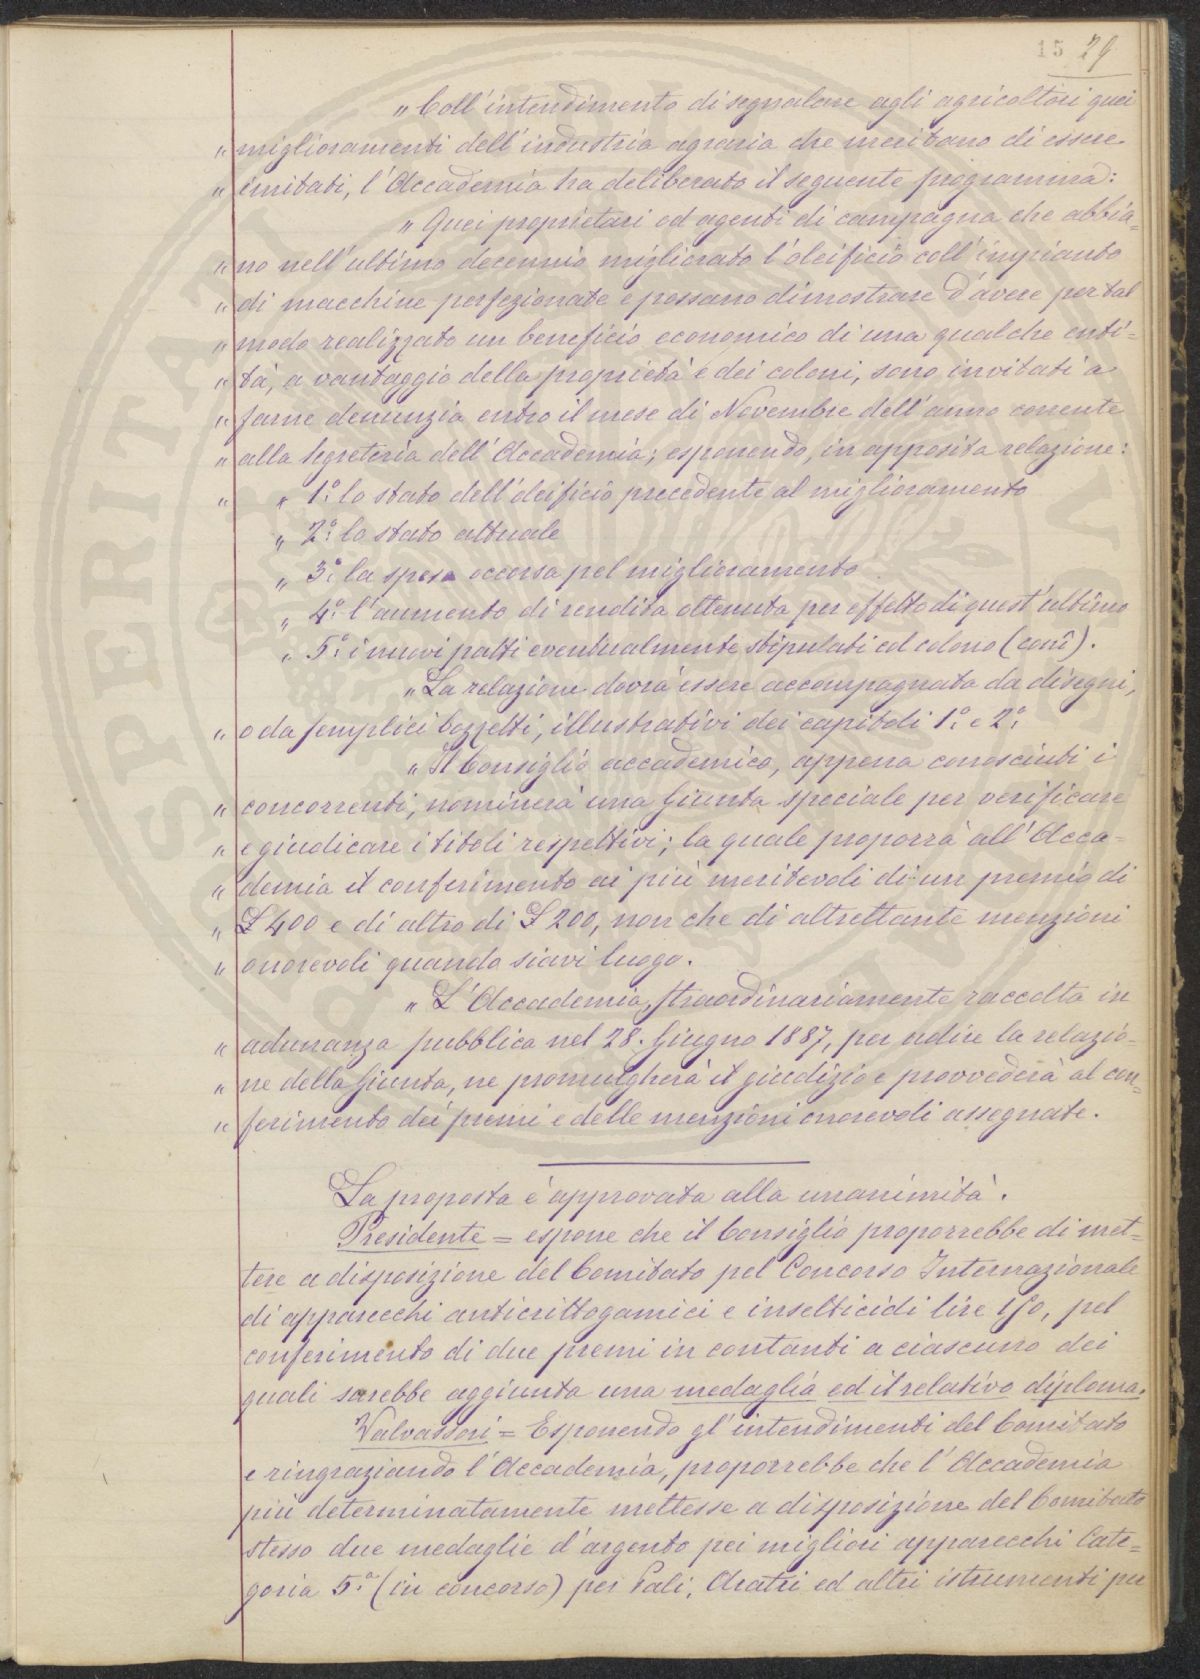 15 29
„ Coll'intendimento di segnalare agli agricoltori quei
„ miglioramenti dell'industria agraria che meritano di essere
„ imitati, l'Accademia ha deliberato il seguente programma:
„ Quei proprietari od agenti di campagna che abbia=
„ no nell'ultimo decennio migliorato l'oleificio coll'impianto
„ di macchine perfezionate e possano dimostrare d'avere per tal
„ modo realizzato un beneficio economico di una qualche enti=
„ tà, a vantaggio della proprietà e dei coloni, sono invitati a
„ farne denunzia entro il mese di Novembre dell'anno corrente
„ alla Segreteria dell'Accademia; esponendo, in apposita relazione:
„ „ 1.º lo stato dell'oleificio precedente al miglioramento
„ 2.º lo stato attuale
„ 3.º la spesa occorsa pel miglioramento
„ 4.º l'aumento di rendita ottenuta per effetto di quest'ultimo
„ 5.º i nuovi patti eventualmente stipulati col colono (così).
„ La relazione dovrà essere accompagnata da disegni,
„ o da semplici bozzetti, illustrativi dei capitoli 1.º e 2.º
„ Il Consiglio accademico, appena conosciuti i
„ concorrenti, nominerà una Giunta speciale per verificare
„ e giudicare i titoli respettivi; la quale proporrà all'Acca=
„ demia il conferimento ai più meritevoli di un premio di
„ £ 400 e di altro di £ 200, non che di altrettante menzioni
„ onorevoli quando siavi luogo.
„ L'Accademia, straordinariamente raccolta in
„ adunanza pubblica nel 28. Giugno 1887, per udire la relazio=
„ ne della Giunta, ne promulgherà il giudizio e provvederà al con=
„ ferimento dei premi e delle menzioni onorevoli assegnate.
La proposta è approvata alla unanimità.
Presidente = espone che il Consiglio proporrebbe di met=
tere a disposizione del Comitato pel Concorso Internazionale
di apparecchi anticrittogamici e insetticidi lire 150, pel
conferimento di due premi in contanti a ciascuno dei
quali sarebbe aggiunta una medaglia ed il relativo diploma.
Valvassori = Esponendo gl'intendimenti del Comitato
e ringraziando l'Accademia, proporrebbe che l'Accademia
più determinatamente mettesse a disposizione del Comitato
stesso due medaglie d'argento pei migliori apparecchi Cate=
goria 5.ª (in concorso) per Pali, Aratri ed altri istrumenti per